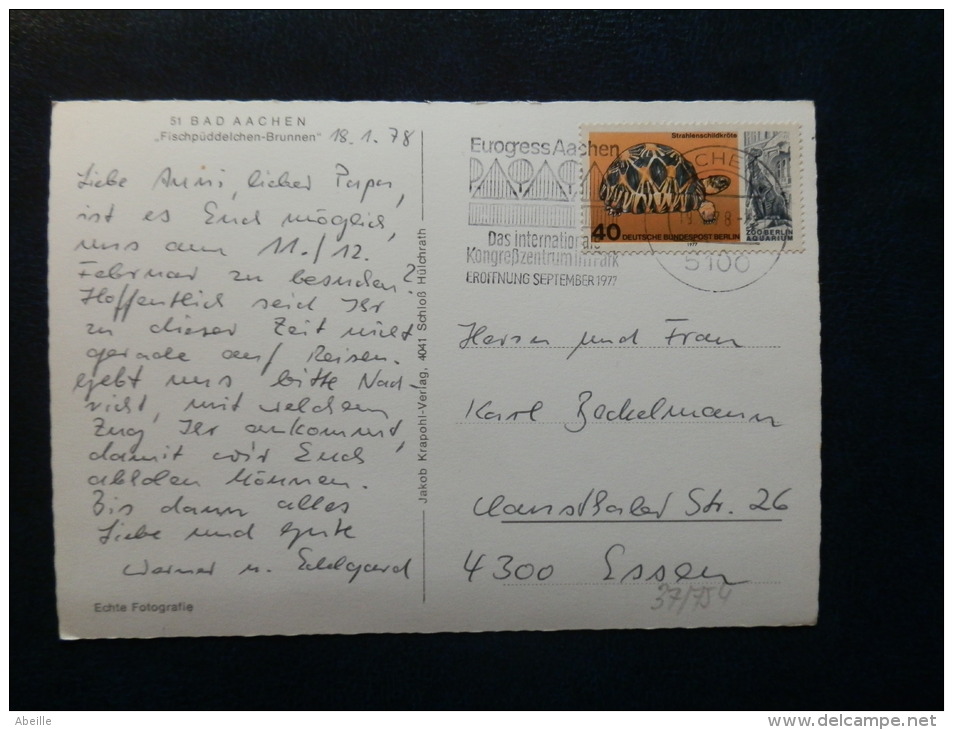 51 BAD AACHEN
„Fischpüddelchen-Brunnen"
18.1.78
Liebe Anni, lieber Papa,
ist es Euch möglich,
uns am 11./12.
Februar zu besuchen?
Hoffentlich seid Ihr
zu dieser Zeit nicht
gerade auf Reisen.
Gebt uns bitte Nach-
richt, mit welchem
Zug Ihr ankommt,
damit wir Euch
abholen können.
Bis dann alles
Liebe und Gute
Werner u.
Echte Fotografie
Jakob Krapohl-Verlag, 4041 Schloß Hülchrath
Eurogress Aachen
Das internationale
Kongreßzentrum im Park
ERÖFFNUNG SEPTEMBER 1977
5100
Strahlenschildkröte
40
DEUTSCHE BUNDESPOST BERLIN
1977
ZOO BERLIN
AQUARIUM
Herrn und Frau
Karl Beckelmann
Clausthaler Str. 26
4300 Essen
37/754
Abeille
www.delcampe.net